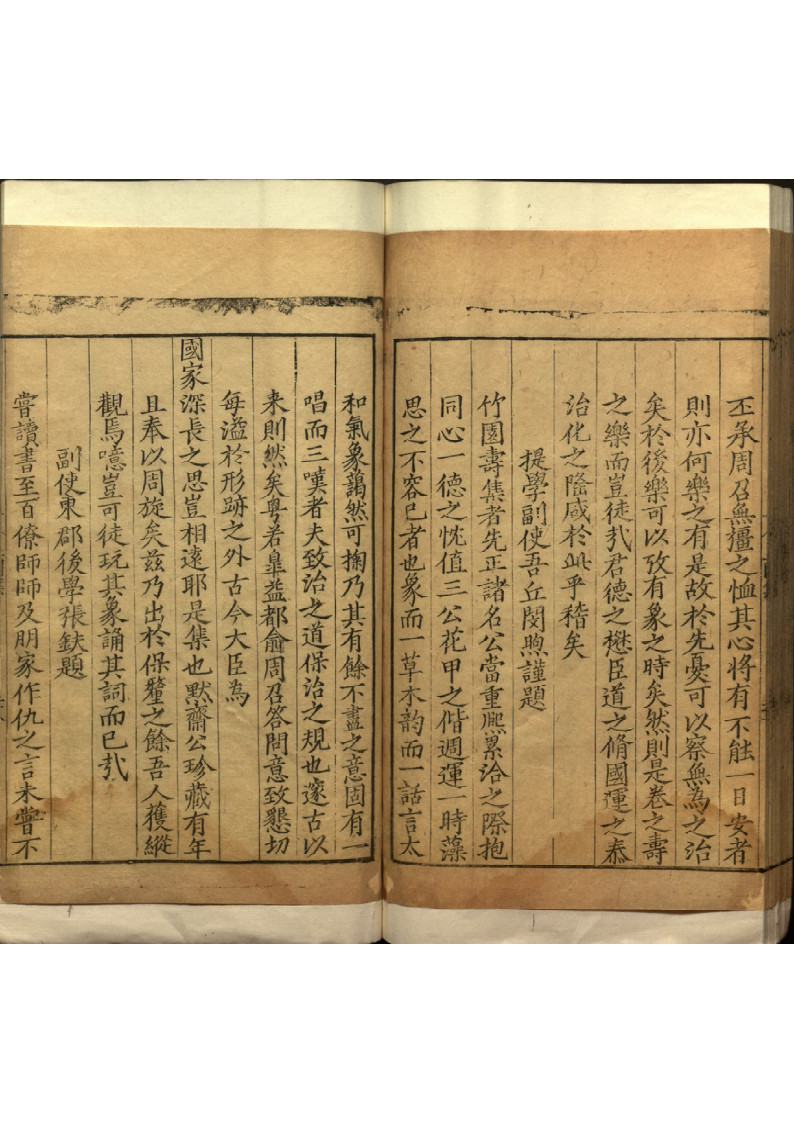 丕承周召無彊之恤其心將有不能一日安者
則亦何樂之有是故於先憂可以察無為之治
矣於後樂可以攷有象之時矣然則是卷之壽
之樂而豈徒㢤君德之懋臣道之脩國運之泰
治化之隆咸於此乎稽矣
提學副使吾丘閔煦謹題
竹園壽集者先正諸名公當重熈累洽之際抱
同心一德之忱值三公花甲之偕週運一時藻
思之不容已者也象而一草木韵而一話言太
和氣象藹然可掬乃其有餘不盡之意固有一
唱而三嘆者夫致治之道保治之規也邃古以
来則然矣粤若臯益都俞周召答問意致懇切
每溢於形跡之外古今大臣為
國家深長之思豈相遠耶是集也默齋公珍藏有年
且奉以周旋矣茲乃出於保釐之餘吾人獲縱
觀焉噫豈可徒玩其象誦其詞而已㢤
副使東郡後學張鈇題
嘗讀書至百僚師師及朋家作仇之言未嘗不